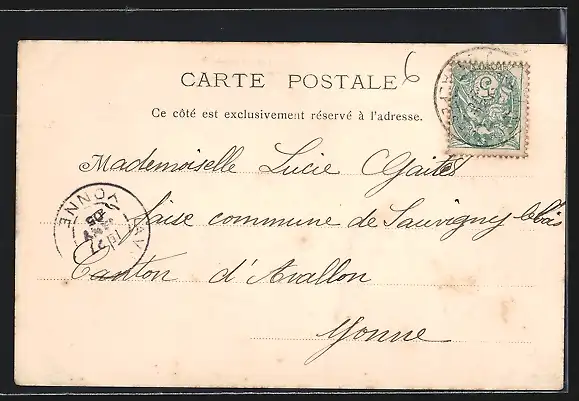 CARTE POSTALE 6
Ce côté est exclusivement réservé à l'adresse.
Mademoiselle Lucie
commune de Sauvigny le Bois
Canton d'Avallon
Yonne
YONNE
05